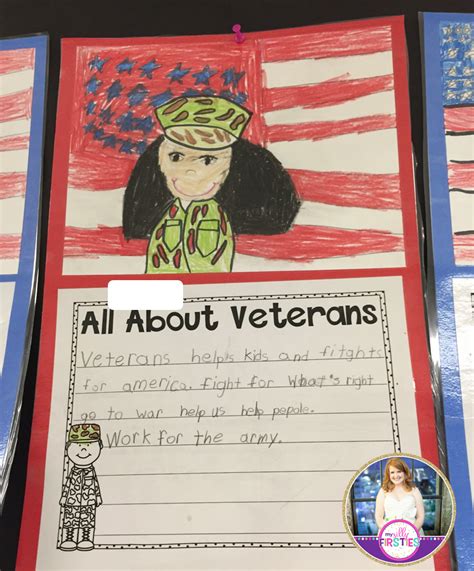 All About Veterans
Veterans helps kids and fitghts
for america. fight for What's right
go to war help us help pepole.
Work for the army.
my silly
FIRSTIES